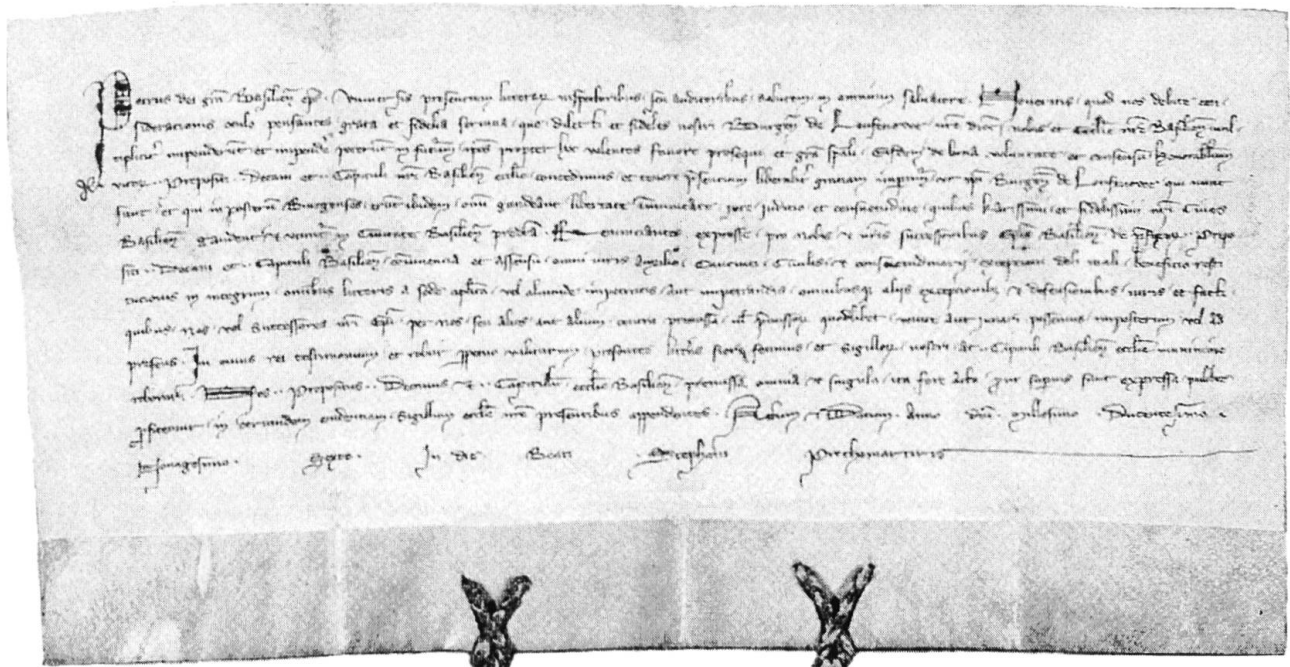 Petrus dei gra Basilien eps. Universis presencium literar inspectoribus seu auditoribus salutem in omnium salvatore. Noveritis quod nos debite con
sideracionis oculo pensantes grata et fidelia servicia que dilecti et fideles nostri Burgen de Loufenover nre dioc nobis et Ecclie nre Basilien mul
tiplicit impenderunt et impende poterunt in futurum ipos propter hec volentes favore prosequi et gra spali Eisdem de bona voluntate et consensu honorabilium
viror .. Prepositi .. Decani et .. Capituli nre Basilien ecclie concedimus et tenore psencium liberalit qui nunc
sunt et qui in posterum Burgenses erunt ibidem omni gaudeant libertate jure judicio et consuetudine quibus karissimi et fidelissimi nri Cives
Basilien gaudent et utunt in Civitate Basilien predca. Renunciantes expresse pro nobis et nris successoribus Epis Basilien de Prepo
siti .. Decani et .. Capituli Basilien et assensu omni iuris Auxilio Canonici Civilis et consuetudinarii exceptioni doli mali beneficio resti
tucionis in integrum omnibus literis a sede aplica vel aliunde impetratis aut impetrandis omnibusque aliis exceptionib et defensionibus iuris et facti
quibus nos vel Successores nri Epi per nos seu alios aut alium contra premissa vel pmissor quodlibet venire aut juvari possemus imposterum vel ad
presens. In cuius rei testimonium et robur ppetuo valiturum presentes literas fecimus et Sigillor nostri ac .. Capituli Basilien ecclie munimine
roborari. Nos .. Prepositus .. Decanus et .. Capitulum ecclie Basilien premissa omnia et singula ita fore acta put superius sunt expressa publice
pfitemur in evidenciam Sigillum ecclie nre presentibus appendentes. Actum et Datum Anno dni Millesimo Ducentesimo
Nonagesimo Sexto In die Beati Stephani Prothomartiris